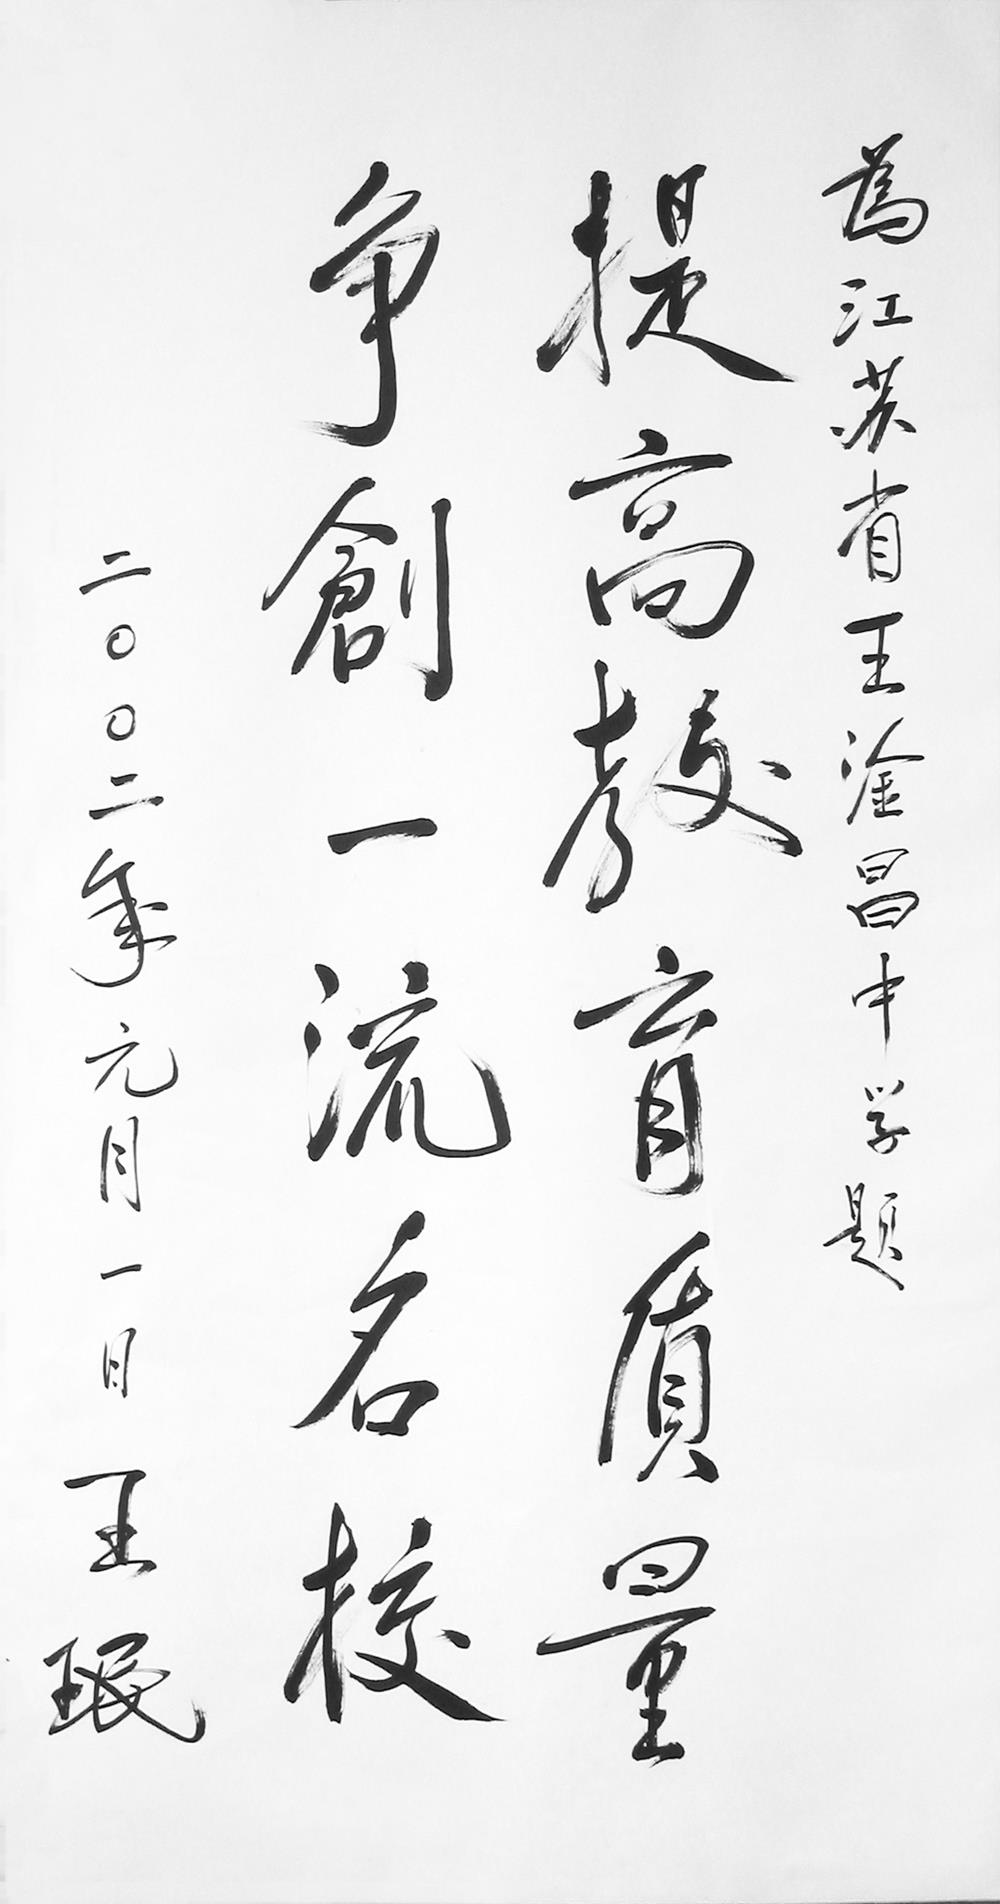 為江苏省王淦昌中学题
提高教育质量
争創一流名校
二〇〇二年元月一日 王珉